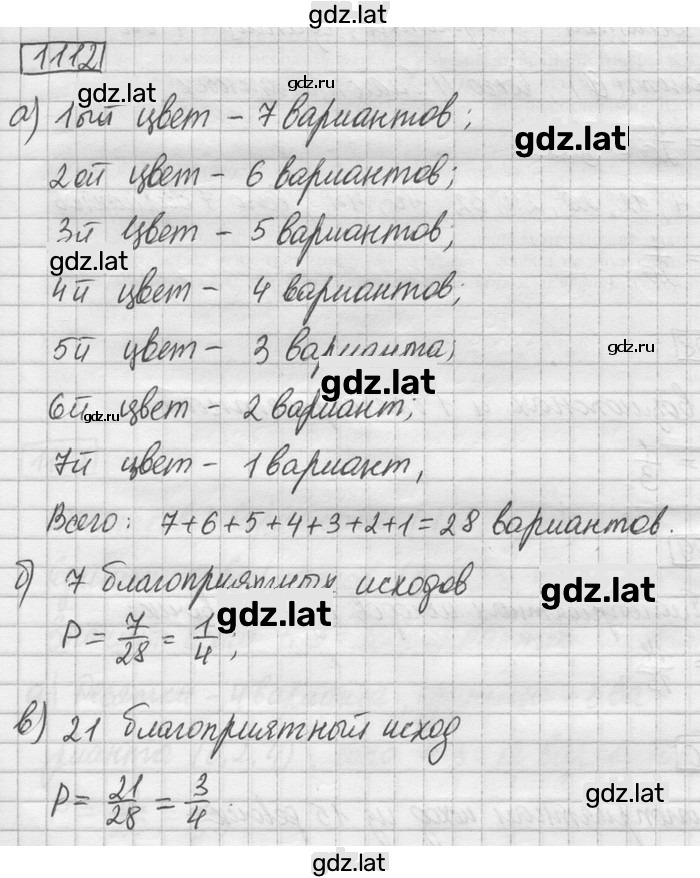 gdz.lat
1112
gdz.ru
gdz.lat
а) 1ый цвет – 7 вариантов;
gdz.lat
2ой цвет – 6 вариантов;
3й цвет – 5 вариантов;
gdz.lat
4й цвет – 4 вариантов;
5й цвет – 3 варианта;
gdz.ru
gdz.lat
6й цвет – 2 вариант;
gdz.ru
7й цвет – 1 вариант,
Всего: 7+6+5+4+3+2+1 = 28 вариантов.
б) 7 благоприятных исходов
gdz.lat
gdz.lat
P = 7/28 = 1/4;
в) 21 благоприятный исход
P = 21/28 = 3/4
gdz.lat
gdz.lat